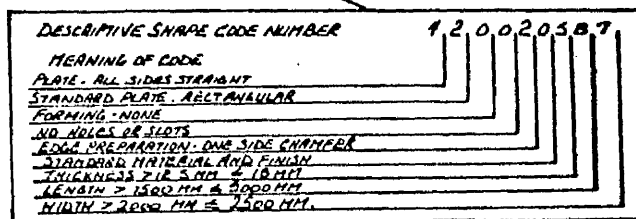 DESCRIPTIVE SHAPE CODE NUMBER 4 2 0 0 2 0 5 B 7
MEANING OF CODE
PLATE - ALL SIDES STRAIGHT
STANDARD PLATE - RECTANGULAR
FORMING - NONE
NO HOLES OR SLOTS
EDGE PREPARATION - ONE SIDE CHAMFER
STANDARD MATERIAL AND FINISH
THICKNESS > 12.5 MM ≤ 18 MM
LENGTH > 1500 MM ≤ 3000 MM
WIDTH > 2000 MM ≤ 2500 MM.